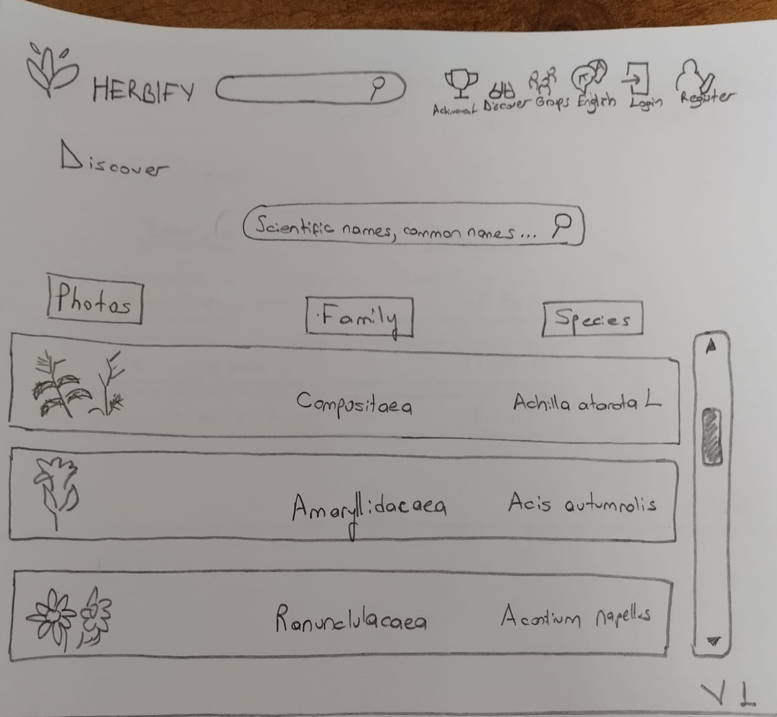 HERBIFY
Discover Groups English Login Register
Discover
Scientific names, common names...
Photos Family Species
Compositaea Achilla atarata L
Amaryllidacaea Acis autumnolis
Ranunclulacaea Acontium napellus
V 1